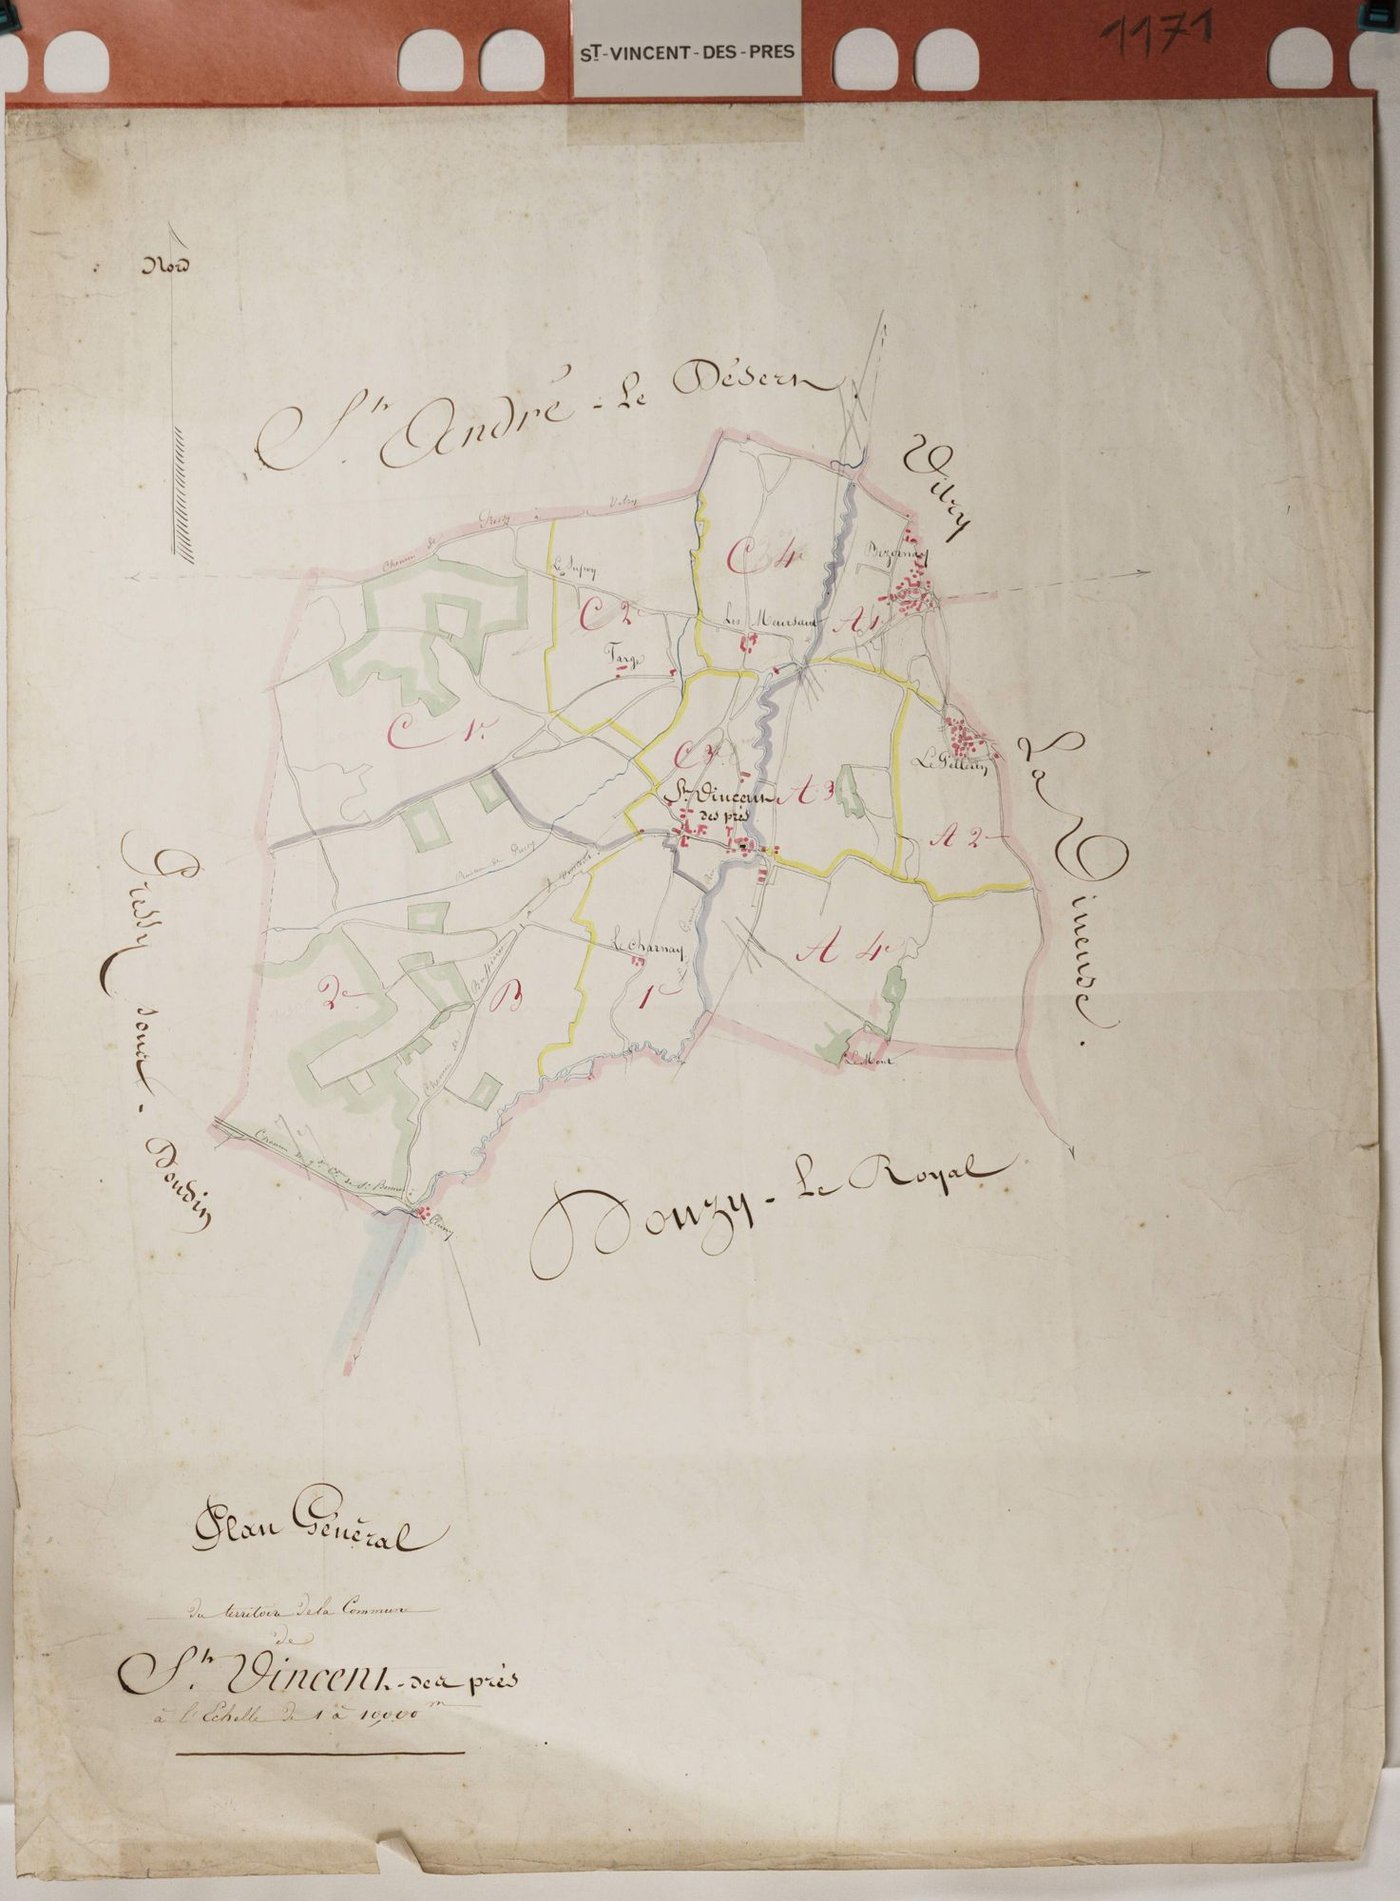 ST-VINCENT-DES-PRES
1171
Nord
St. André-Le Désert
Vitry
Chemin de Pressy à Vitry
C 4e
Bezornay
Le Supoy
C 2e
Les Meursaud
A 1e
Targe
C 1re
C 3e
Le Gelletin
St. Vincent
des prés
A 3e
A 2e
La Vineuse.
Pressy sous-Dondin
Le Charnay
A 4e
2e
B
1e
Le Mont
Chemin de
Cluny
Donzy-Le Royal
Plan Général
du territoire de la Commune
de
St. Vincent-des prés
à l'Echelle de 1 à 10,000m